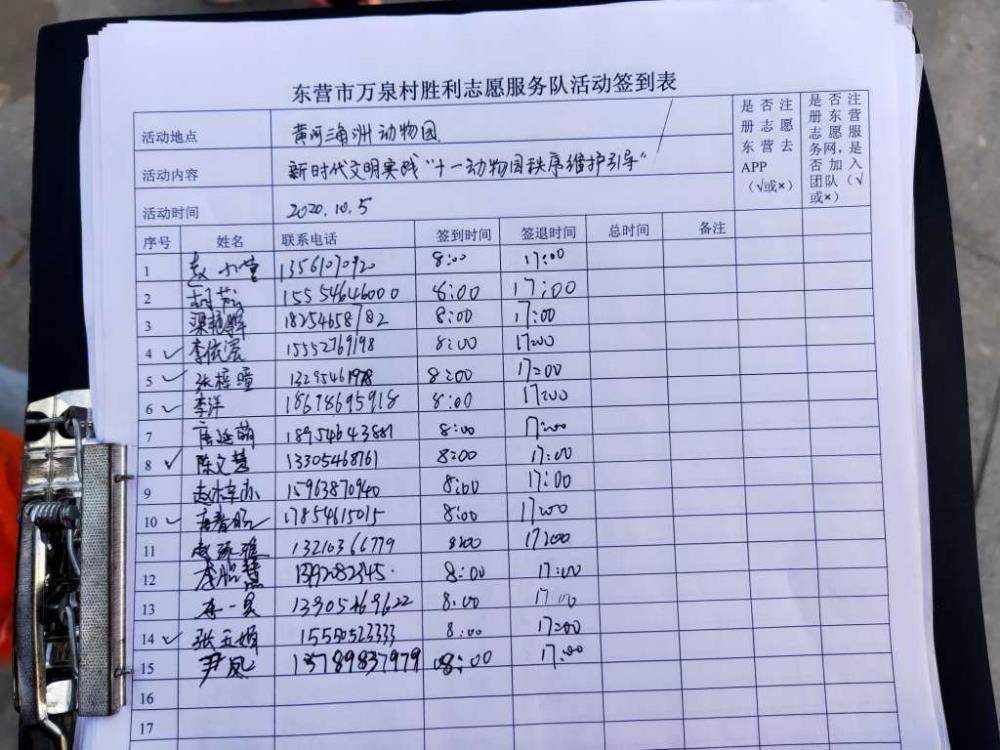 东营市万泉村胜利志愿服务队活动签到表
活动地点 黄河三角洲动物园
活动内容 新时代文明实践“十一动物园秩序维护引导”
活动时间 2020.10.5
是否注册志愿东营去APP（√或×）
是否注册东营志愿服务网，是否加入团队（√或×）
序号 姓名 联系电话 签到时间 签退时间 总时间 备注
1 赵 13561070920 8:00 17:00
2 15554646000 8:00 17:00
3 梁 18254658782 8:00 17:00
4 ✓ 李依宸 15552769198 8:00 17:00
5 ✓ 张梓瞳 8:00 17:00
6 ✓ 李洋 18678695918 8:00 17:00
7 18954643881 8:00 17:00
8 ✓ 陈文慧 13305468761 8:00 17:00
9 赵 15963870940 8:00 17:00
10 ✓ 17854615015 8:00 17:00
11 赵 13210366779 8:00 17:00
12 李 8:00 17:00
13 李一 8:00 17:00
14 ✓ 张玉娟 15550523333 8:00 17:00
15 尹凤 13789837979 08:00 17:00
16
17